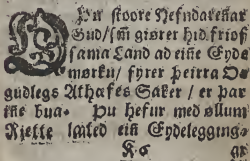 Ðu stoore Hefndarenar
Gud/ sm̃ giører hid friof
sama Land ad eiñe Eyde
mørku/ fyrer þeirra O
gudlegs Athæfes Saker/ er þar
iñe bua. Þu hefur med øllum
Riette lated eiñ Eydeleggingar
K 6 ar